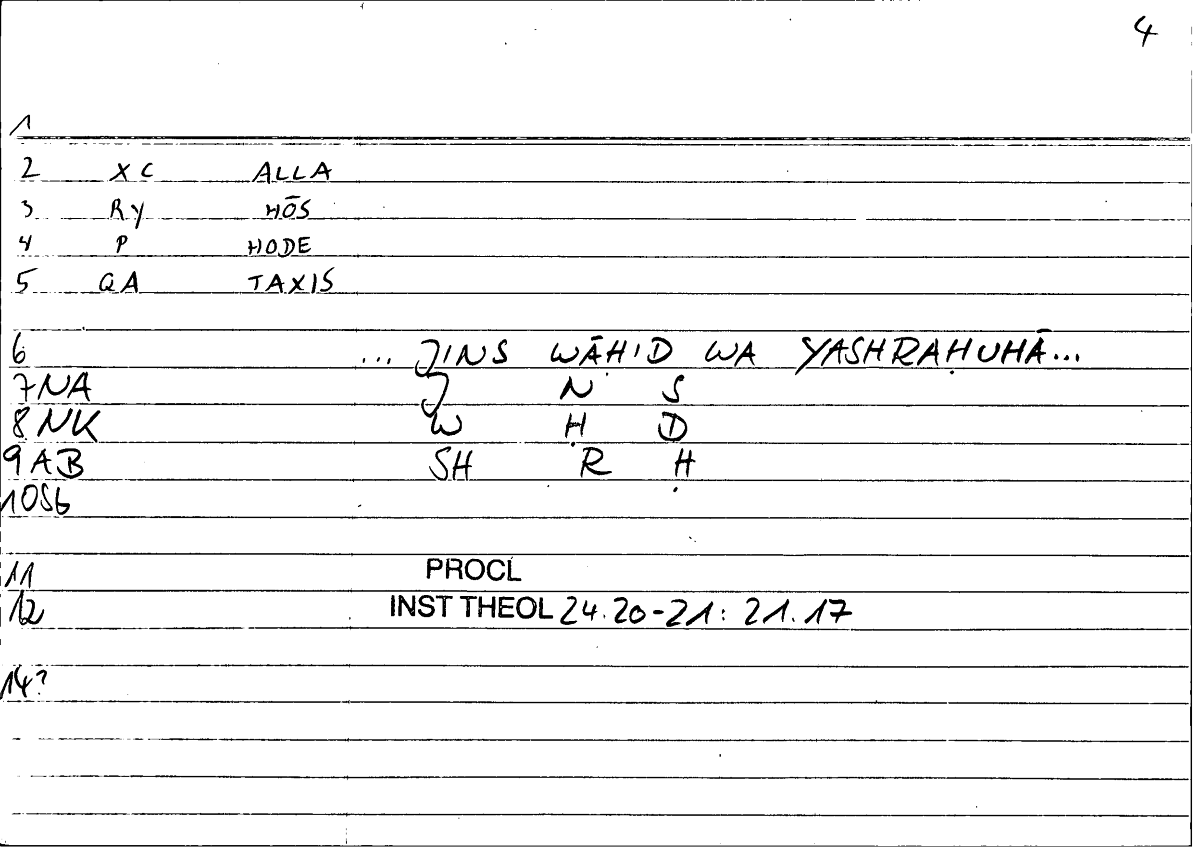 4
1
2 XC ALLA
3 RY HŌS
4 P HODE
5 QA TAXIS
6 ... JINS WĀḤID WA YASHRAḤUHĀ...
7 NA J N S
8 NK W Ḥ D
9 AB SH R Ḥ
10 Sb
11 PROCL
12 INST THEOL 24.20-21: 21.17
14?